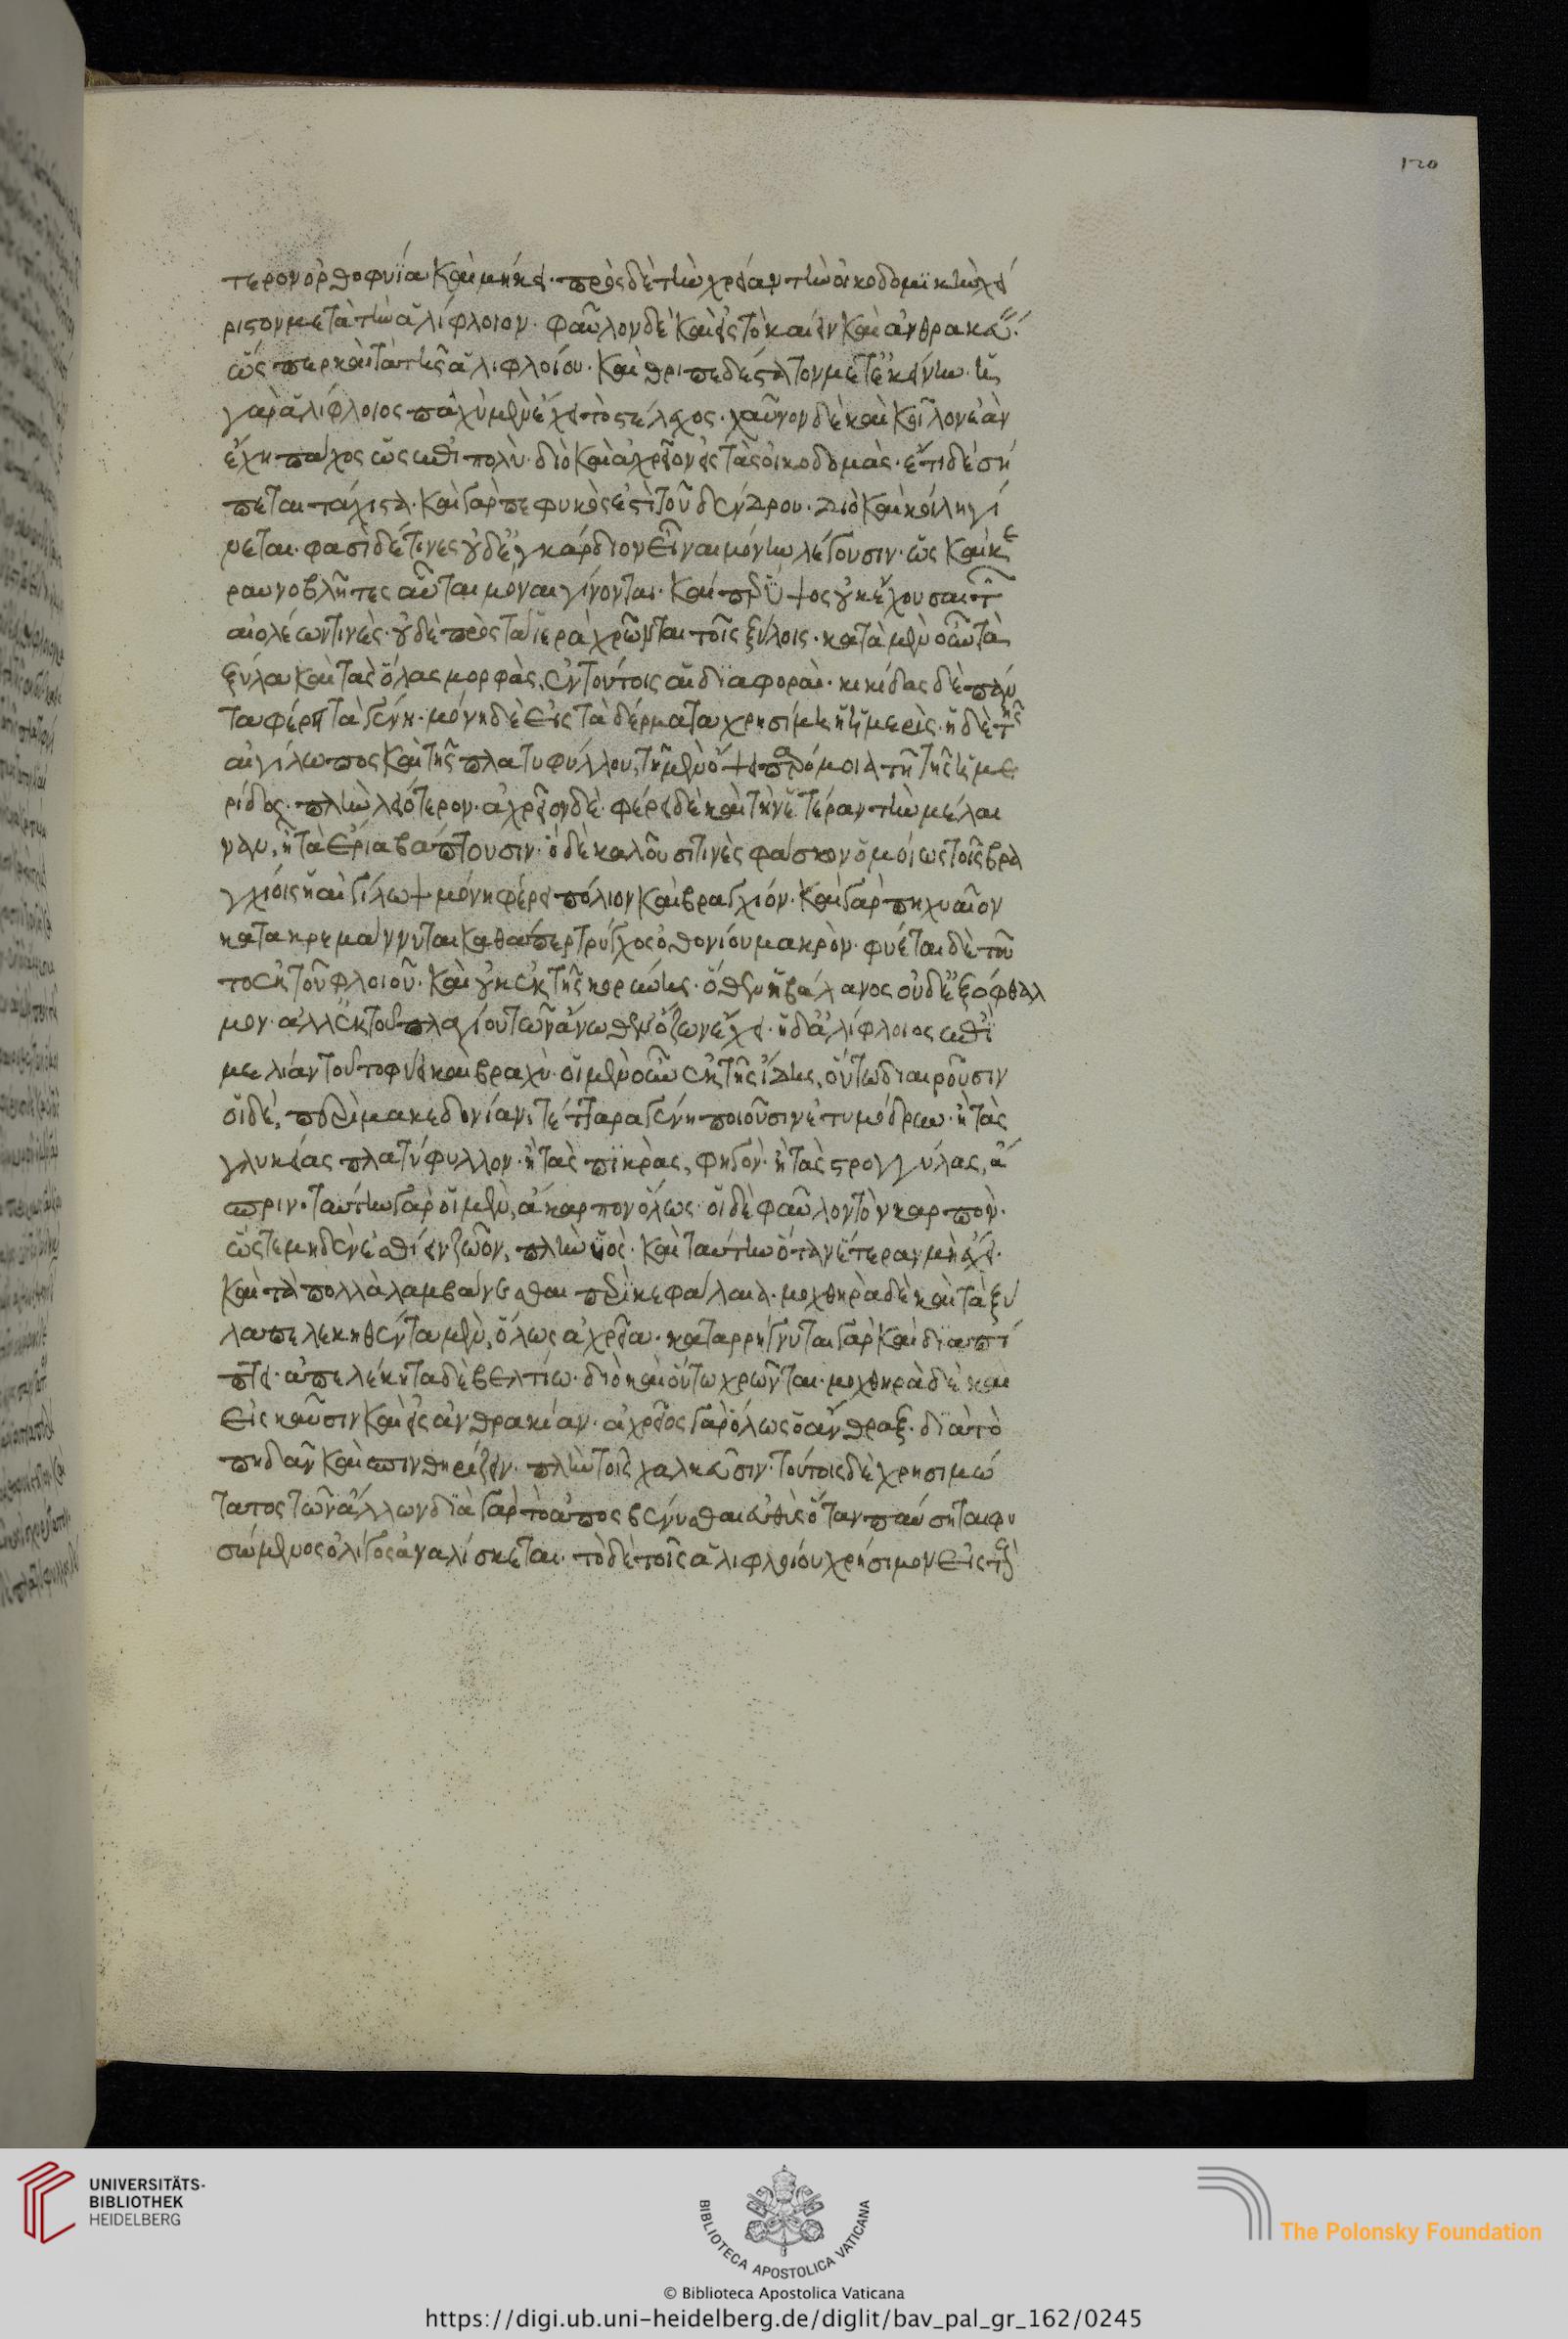 120
τερον ὀρθοφυΐα καὶ μήκει· πρὸς δὲ τὴν χρείαν τὴν οἰκοδομϊκὴν χεί
ριστον μετὰ τὴν ἁλίφλοιον· φαῦλον δὲ καὶ εἰς τὸ καίειν καὶ ἀνθρακεύειν·
ὥσπερ καὶ τὰ τῆς ἁλιφλοίου· καὶ θριπηδέστατον μετ' ἐκείνην· ἡ
γὰρ ἁλίφλοιος παχὺ μὲν ἔχει τὸ στέλεχος· χαῦνον δὲ καὶ κοῖλον ἐὰν
ἔχη πάχος ὡς ἐπὶ πολὺ· διὸ καὶ ἀχρεῖον εἰς τὰς οἰκοδομὰς· ἔτι δὲ σή
πεται τάχιστα· καὶ γὰρ πεφυκὸς ἐστὶ τοῦ δένδρου· διὸ καὶ κοίλη γί
νεται· φασὶ δέ τινες οὐδ' ἐγκάρδιον εἶναι μόνην λέγουσιν· ὡς καὶ κε
ραυνοβλῆτες αὗται μόναι γίνονται· καίπερ ὕψος οὐκ ἔχουσαι τῶν
αἰολέων τινὲς· οὐδὲ πρὸς τὰ ἱερὰ χρῶνται τοῖς ξύλοις· κατὰ μὲν οὖν τὰ
ξύλα καὶ τὰς ὅλας μορφὰς, ἐν τούτοις αἱ διαφοραὶ· κικίδας δὲ πάν
τα φέρει τὰ γένη· μόνη δὲ εἰς τὰ δέρματα χρησίμη ἡ ἡμερὶς· ἡ δὲ τῆς
αἰγίλωπος καὶ τῆς πλατυφύλλου, τῇ μὲν ὄψει παρόμοια τῆ τῆς ἡμε
ρίδος· πλὴν λειότερον· ἀχρεῖον δὲ· φέρει δὲ καὶ τὴν ἑτέραν τὴν μέλαι
ναν, ἧ τὰ ἔρια βάπτουσιν· ὃ δὲ καλοῦσί τινὲς φάσκον ὅμοίως τοῖς βρα
γχίοις ἡ αἰγίλωψ μόνη φέρει πόλιον καὶ βραγχιόν· καὶ γὰρ πηχυαῖον
κατακρεμάννυται καθάπερ τρύγχος ὀθονίου μακρὸν· φύεται δὲ τοῦ
το ἐκ τοῦ φλοιοῦ· καὶ οὐκ ἐκ τῆς κορύνης· ὅθεν ἡ βάλανος οὐδ' ἐξ ὀφθαλ
μου· ἀλλ' ἐκ τοῦ πλαγίου τῶν ἄνωθεν ὄζων ἔχει· ἡ δ' ἁλίφλοιος ἐπὶ
μελίαν τοῦτο φύει καὶ βραχὺ· οἱ μὲν οὖν ἐκ τῆς ἴδης, οὕτω διαιροῦσιν
οἱ δὲ, περὶ μακεδονίαν, τέτταρα γένη ποιοῦσιν ἐτυμόδρυν· ἢ τὰς
γλυκείας πλατύφυλλον· ἢ τὰς πϊκρὰς, φηγὸν· ἢ τὰς στρογγύλας, ἄ
σπριν· ταύτην γὰρ οἱ μὲν, ἄκαρπον ὅλως· οἱ δὲ φαῦλον τὸν καρπὸν·
ὥστε μηδὲν ἐσθίειν ζῶον, πλὴν ὑὸς· καὶ ταύτην ὅταν ἑτέραν μὴ ἔχει·
καὶ τὰ πολλὰ λαμβάνεσθαι περὶ κεφάλαια· μοχθηρὰ δὲ καὶ τὰ ξύ
λα πελεκηθέντα μὲν, ὅλως ἀχρεῖα· καταρρήγνυται γὰρ καὶ διαπί
πτει· ἀπελέκητα δὲ βελτίω· διὸ καὶ οὕτω χρῶνται· μοχθηρὰ δὲ καὶ
εἰς καῦσιν καὶ εἰς ἀνθρακίαν· ἀχρεῖος γὰρ ὅλως ὁ ἄνθραξ· διὰ τὸ
πηδᾶν καὶ σπινθηρίζειν· πλὴν τοῖς χαλκεῦσιν· τούτοις δὲ χρησιμώ
τατος τῶν ἄλλων διὰ γὰρ τὸ ἀποσβέννυσθαι εὐθὺς ὅταν παύσηται φυ
σώμενος ὀλίγος ἀναλίσκεται· τὸ δὲ τοῖς ἁλιφλοίου χρήσιμον εἰς τοὺς
UNIVERSITÄTS-
BIBLIOTHEK
HEIDELBERG
BIBLIOTECA APOSTOLICA VATICANA
The Polonsky Foundation
© Biblioteca Apostolica Vaticana
https://digi.ub.uni-heidelberg.de/diglit/bav_pal_gr_162/0245